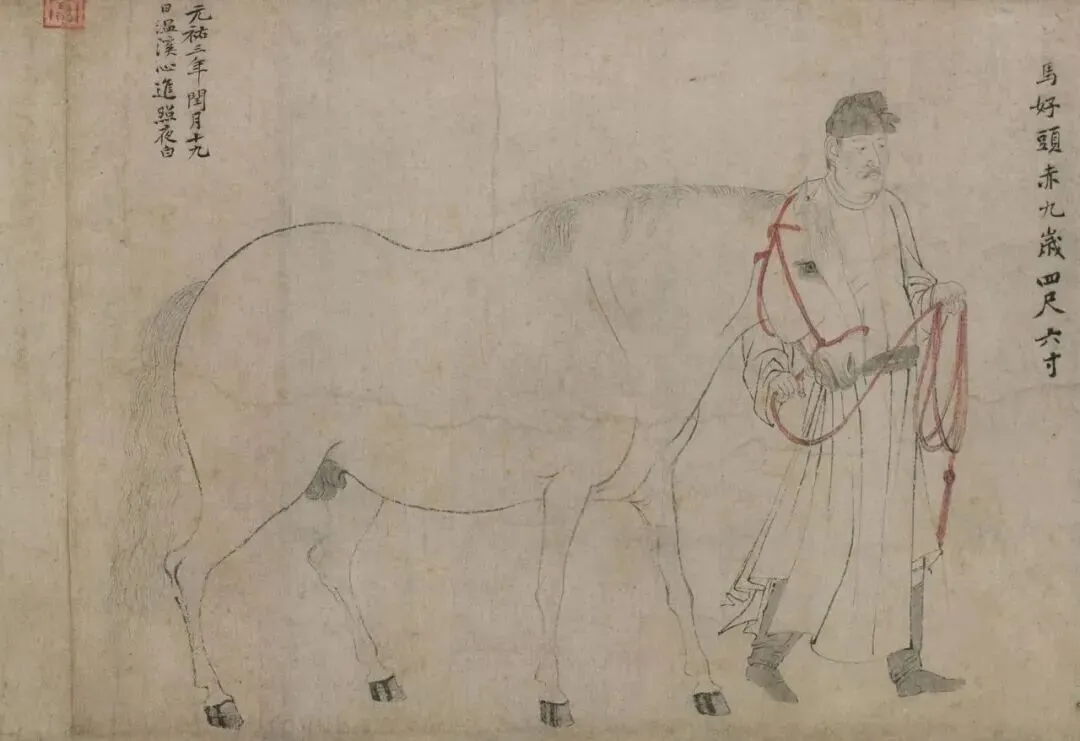 馬好頭赤九歲四尺六寸
元祐三年閏月十九
日温溪心進照夜白